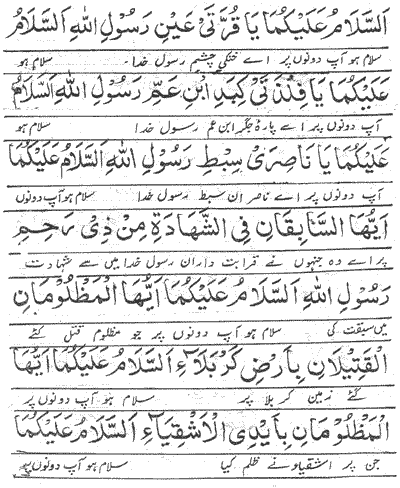 اَلسَّلَامُ عَلَيْكُمَا يَا قُرَّتَىْ عَيْنِ رَسُوْلِ اللهِ اَلسَّلَامُ
سلام ہو آپ دونوں پر اے خنکیٔ چشم رسول خدا۔ سلام ہو
عَلَيْكُمَا يَا فِلْذَتَىْ كَبِدِ ابْنِ عَمِّ رَسُوْلِ اللهِ اَلسَّلَامُ
آپ دونوں پر اے پارۂ جگر ابن عم رسول خدا سلام ہو
عَلَيْكُمَا يَا نَاصِرَىْ سِبْطِ رَسُوْلِ اللهِ اَلسَّلَامُ عَلَيْكُمَا
آپ دونوں پر اے ناصران سبط رسول خدا سلام ہو آپ دونوں
اَيُّهَا السَّابِقَانِ فِى الشَّهَادَةِ مِنْ ذِىْ رَحِمِ
پر اے وہ جنہوں نے قرابت داران رسول خدا میں سے شہادت
رَسُوْلِ اللهِ اَلسَّلَامُ عَلَيْكُمَا اَيُّهَا الْمَظْلُوْمَانِ
میں سبقت کی سلام ہو آپ دونوں پر جو مظلوم قتل کئے
الْقَتِيْلَانِ بِاَرْضِ كَرْبَلَاءَ اَلسَّلَامُ عَلَيْكُمَا اَيُّهَا
گئے زمین کربلا پر سلام ہو آپ دونوں پر
الْمَظْلُوْمَانِ بِاَيْدِى الْاَشْقِيَاءِ اَلسَّلَامُ عَلَيْكُمَا
جن پر اشقیاء نے ظلم کیا سلام ہو آپ دونوں پر